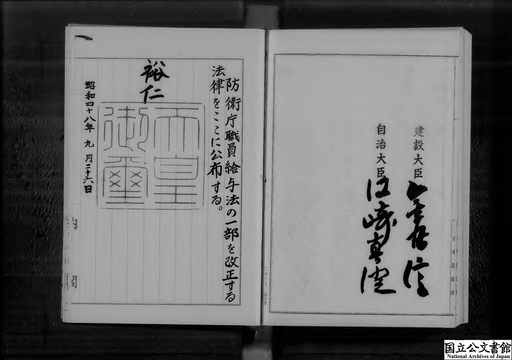 建設大臣 金丸信
自治大臣 江崎真澄
防衛庁職員給与法の一部を改正する
法律をここに公布する。
裕仁
天皇
御璽
昭和四十八年 九月二十六日
内閣
国立公文書館
National Archives of Japan